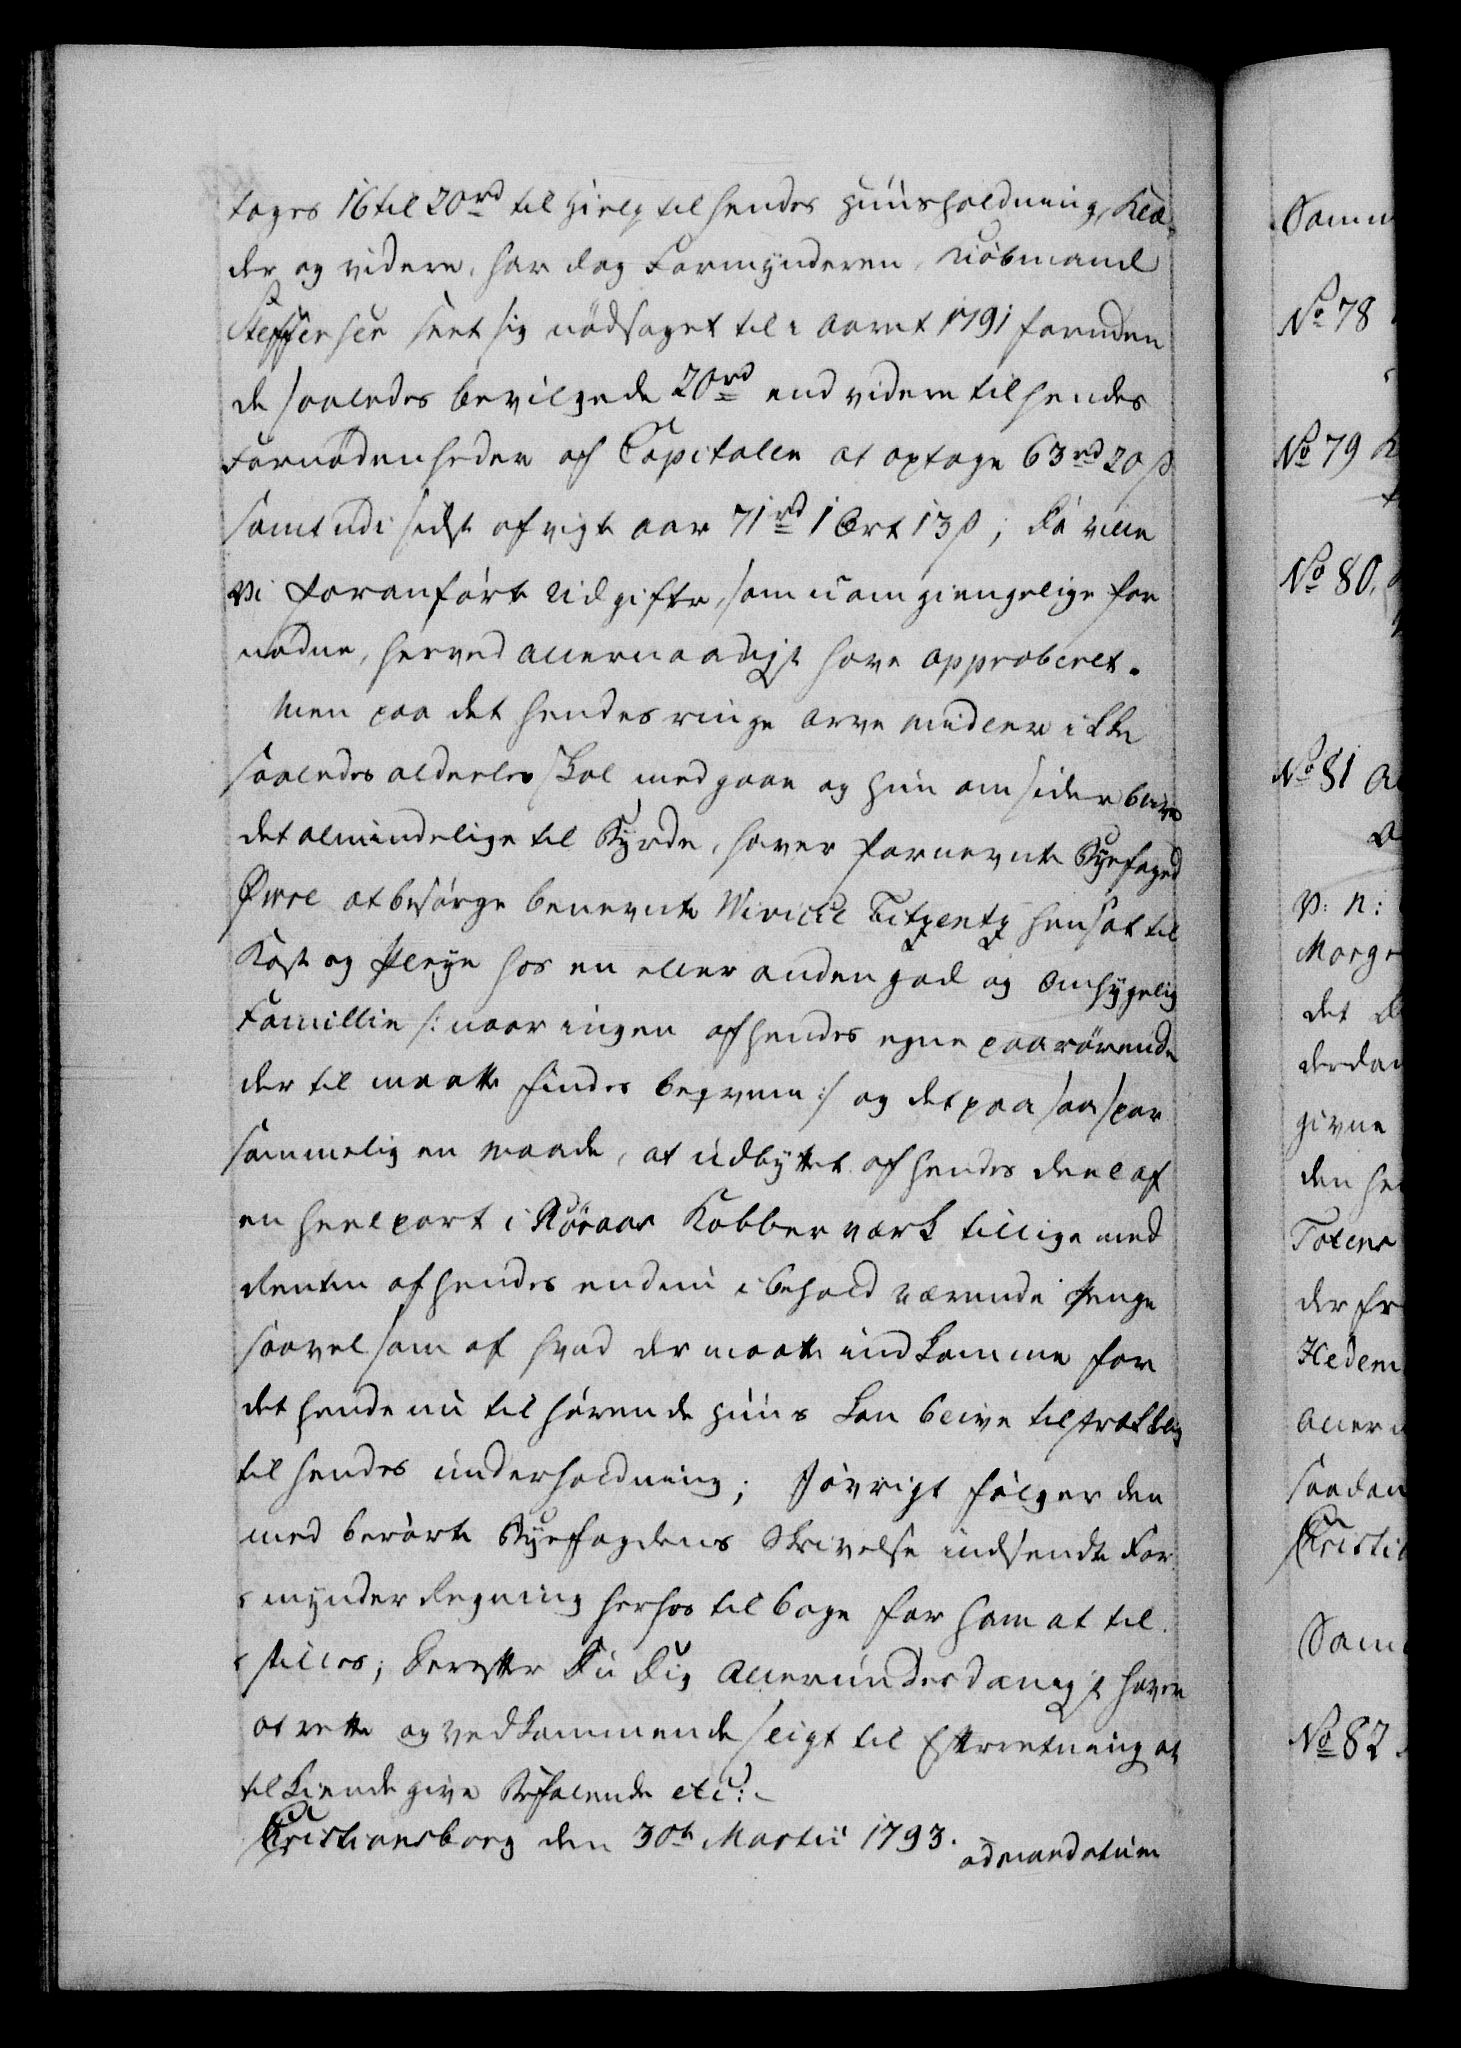 tages 16 til 20 rd til Hielp til hendes Huusholdning, Klæ-
der og videre, har dog Formynderen, Kiøbmand
Steffensen seet sig nødsaget til i Aaret 1791 foruden
de saaledes bevilgede 20 rd end videre til hendes
Fornødenheder af Capitalen at optage 63 rd 20 s
samt udi sidst afvigte aar 71 rd 1 Ort 13 s; Da ville
Vi foranførte Udgifter, som uomgiengelige for
nødne, herved allernaadigst have approberet.
Men paa det hendes ringe arve midler ikke
saaledes aldeeles skal medgaae og hun omsider blive
det almindelige til Byrde, haver fornevnte Byefoged
at besørge benevnte Wivicke hensat til
Kost og Pleye hos en eller anden god og omhyggelig
Famillie /: naar ingen af hendes egne paarørende
der til maatte findes beqvem :/ og det paa saa spar
sommelig en maade, at udbyttet af hendes deel af
en heel part i Røraas Kobberværk tillige med
Renten af hendes endnu i behold værende Penge
saavelsom af hvad der maatte indkomme for
det hende nu tilhørende Huus kan blive tilstrækkelig
til hendes underholdning; Iøvrigt følger den
med berørte Byefogdens Skrivelse indsendte For
mynder Regning herhos tilbage for ham at til
stilles; Derefter Du Dig allerunderdanigst haver
at rette og vedkommende sligt til Efterretning at
tilkiendegive Befalende etc:
Christiansborg den 30te Martii 1793. ad mandatum
No 78
No 79
No 80.
No 81
V: n:
det
givne
den
No 82